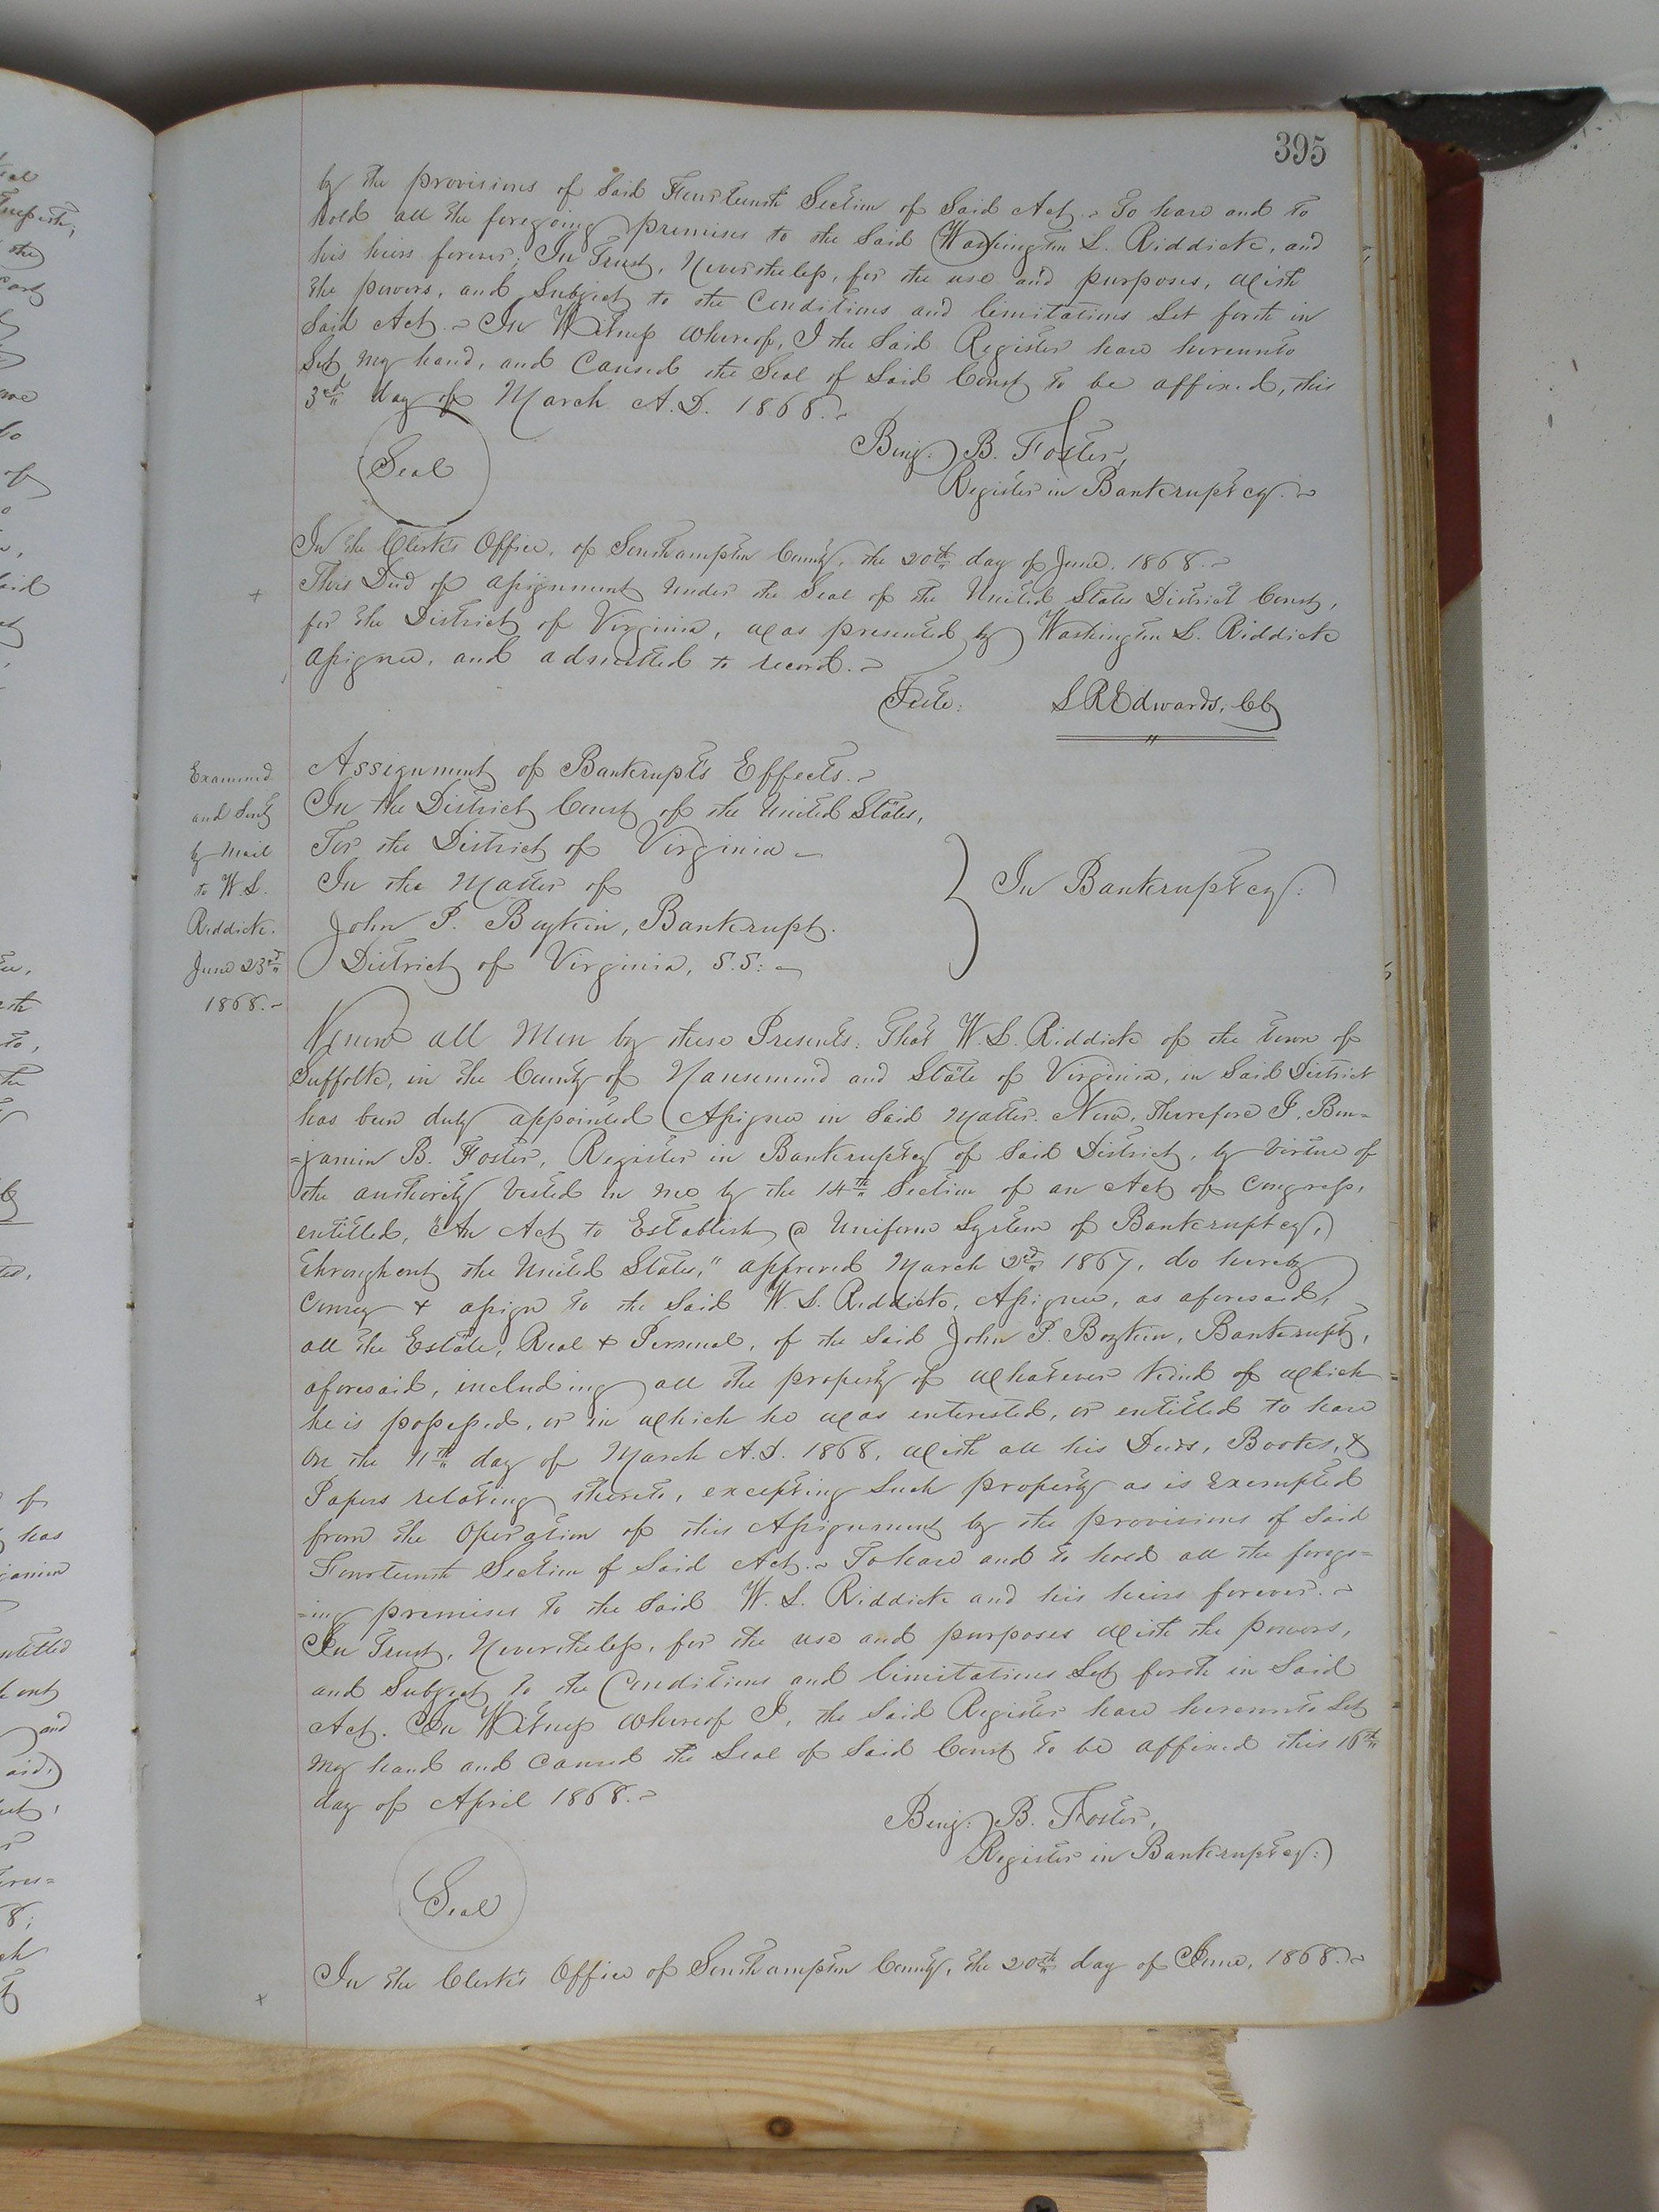 395
by the provisions of Said Fourteenth Section of Said Act.- To have and to
hold all the foregoing premises to the Said Washington L. Riddick, and
his heirs forever; In Trust, Nevertheless, for the use and purposes, with
the powers, and Subject to the Conditions and limitations Set forth in
Said Act.- In Witness whereof, I the Said Register have hereunto
Set my hand, and Caused the Seal of Said Court to be affixed, this
3rd day of March A.D. 1868.-
Seal
Benj: B. Foster,
Register in Bankruptcy.-
In the Clerk's Office, of Southampton County, the 20th day of June, 1868.-
+ This Deed of assignment under the Seal of the United States District Court,
for the District of Virginia, was presented by Washington L. Riddick
assignee, and admitted to record.-
Teste: L R Edwards, CC
Examined
and Sent
by Mail
to W. L.
Riddick.
June 23rd
1868.-
Assignment of Bankrupts Effects.-
In the District Court of the United States,
For the District of Virginia-
In the Matter of
John P. Boykin, Bankrupt.
District of Virginia, S.S:-
} In Bankruptcy:
Know all Men by these Presents: That W. L. Riddick of the town of
Suffolk, in the County of Nansemond and State of Virginia, in Said District
has been duly appointed Assignee in Said Matter. Now, Therefore I, Ben=
=jamin B. Foster, Register in Bankruptcy of Said District, by Virtue of
the authority Vested in me by the 14th Section of an Act of Congress,
entitled, "An Act to Establish a Uniform System of Bankruptcy,
throughout the United States," approved March 2nd 1867, do hereby
Convey & assign to the Said W. L. Riddick, Assignee, as aforesaid,
all the Estate, Real & Personal, of the Said John P. Boykin, Bankrupt,
aforesaid, including all the property of whatever Kind of which
he is possessed, or in which he was interested, or entitled to have
On the 11th day of March A.D. 1868, with all his Deeds, Books, &
Papers relating thereto, excepting Such property as is Exempted
from the Operation of this Assignment by the provisions of Said
Fourteenth Section of Said Act.- To have and to hold all the forego=
=ing premises to the Said W. L. Riddick and his heirs forever.-
In Trust, Nevertheless, for the use and purposes with the powers,
and Subject to the Conditions and limitations Set forth in Said
Act. In Witness whereof I, the Said Register have hereunto Set
my hand and Caused the Seal of Said Court to be affixed this 16th
day of April 1868.-
Benj: B. Foster,
Register in Bankruptcy:
Seal
+ In the Clerk's Office of Southampton County, the 20th day of June, 1868.-